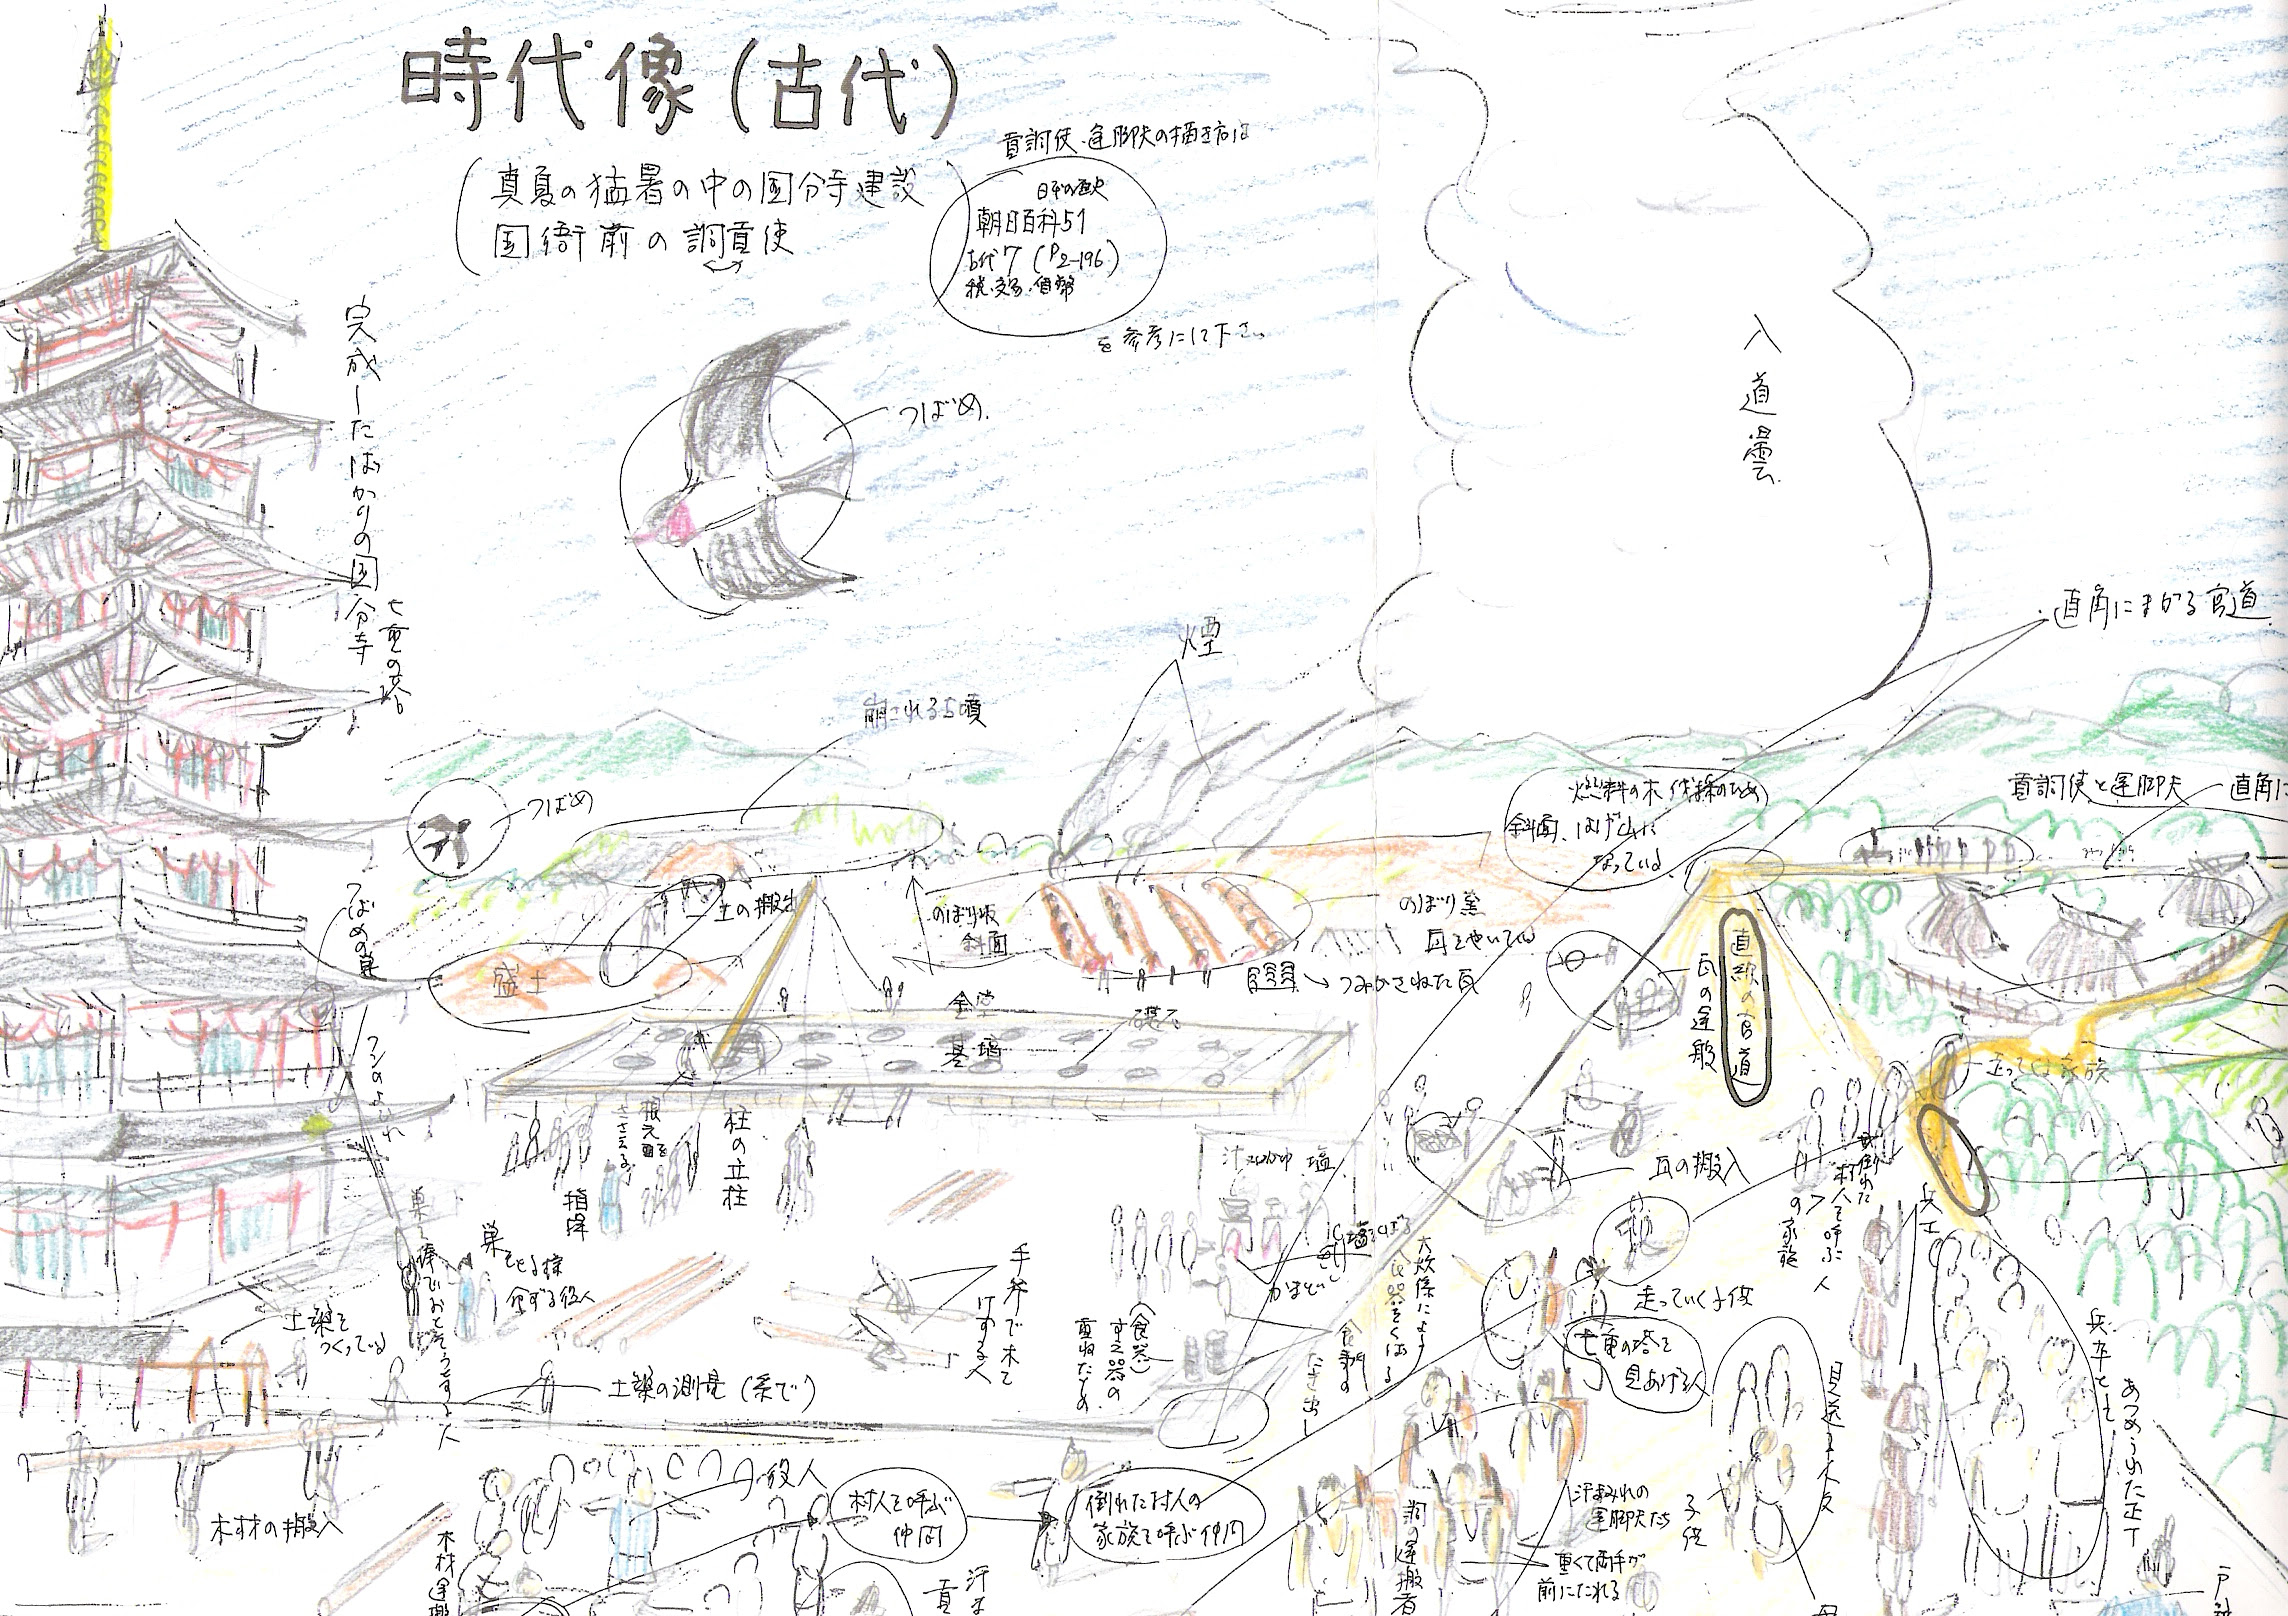 時代像(古代)
真夏の猛暑の中の国分寺建設
国衙前の調貢使
貢調使・運脚夫の描き方は
日本の歴史
朝日百科51
古代7 (P2-196)
税・交易・貨幣
を参考にして下さい
完成したばかりの国分寺
七重の塔
つばめ
入道雲
直角にまがる官道
煙
崩される古墳
つばめ
燃料の木伐採のため
斜面、はげ山に
なっている
貢調使と運脚夫
直角に
土の搬出
のぼり坂
斜面
のぼり窯
瓦をやいている
つみかさねた瓦
盛土
つばめの巣
フンのよごれ
金堂
基壇
礎石
瓦の運搬
直線の官道
走ってくる家族
根元を
ささえる
柱の立柱
指揮
瓦の搬入
倒れた
村人を呼ぶ人
の家族
兵士
かまど
巣を棒でおとそうとする人
巣をとる様
命ずる役人
手斧で木を
けずる人
土塀を
つくっている
土塀の測量(糸で)
(食器)
すえ器の
重ねたもの
食事の
たき出し
走っていく子供
七重の塔を
見あげる人
見送る人々
子供
兵卒として
あつめられた正丁
木材の搬入
役人
村人を呼ぶ
仲間
倒れた村人の
家族を呼ぶ仲間
汗まみれの
運脚夫たち
重くて両手が
前にたれる
調の運搬者
木材運搬